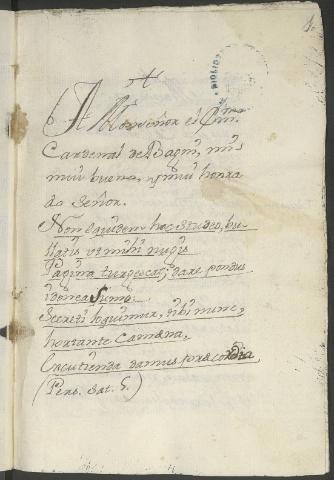 Al Monseñor el Emin.mo
Cardenal de Bagni, mus
muy buena, y muy honra
do Señor.
Non equidem hoc studeo, bu
llatis ut mihi nugis
Pagina turgescat; dare pondus
idonea fumo.
Secreti loquimur, tibi nunc,
hortante Camœna,
Excutienda damus præcordia
(Pers. Sat. 5.)